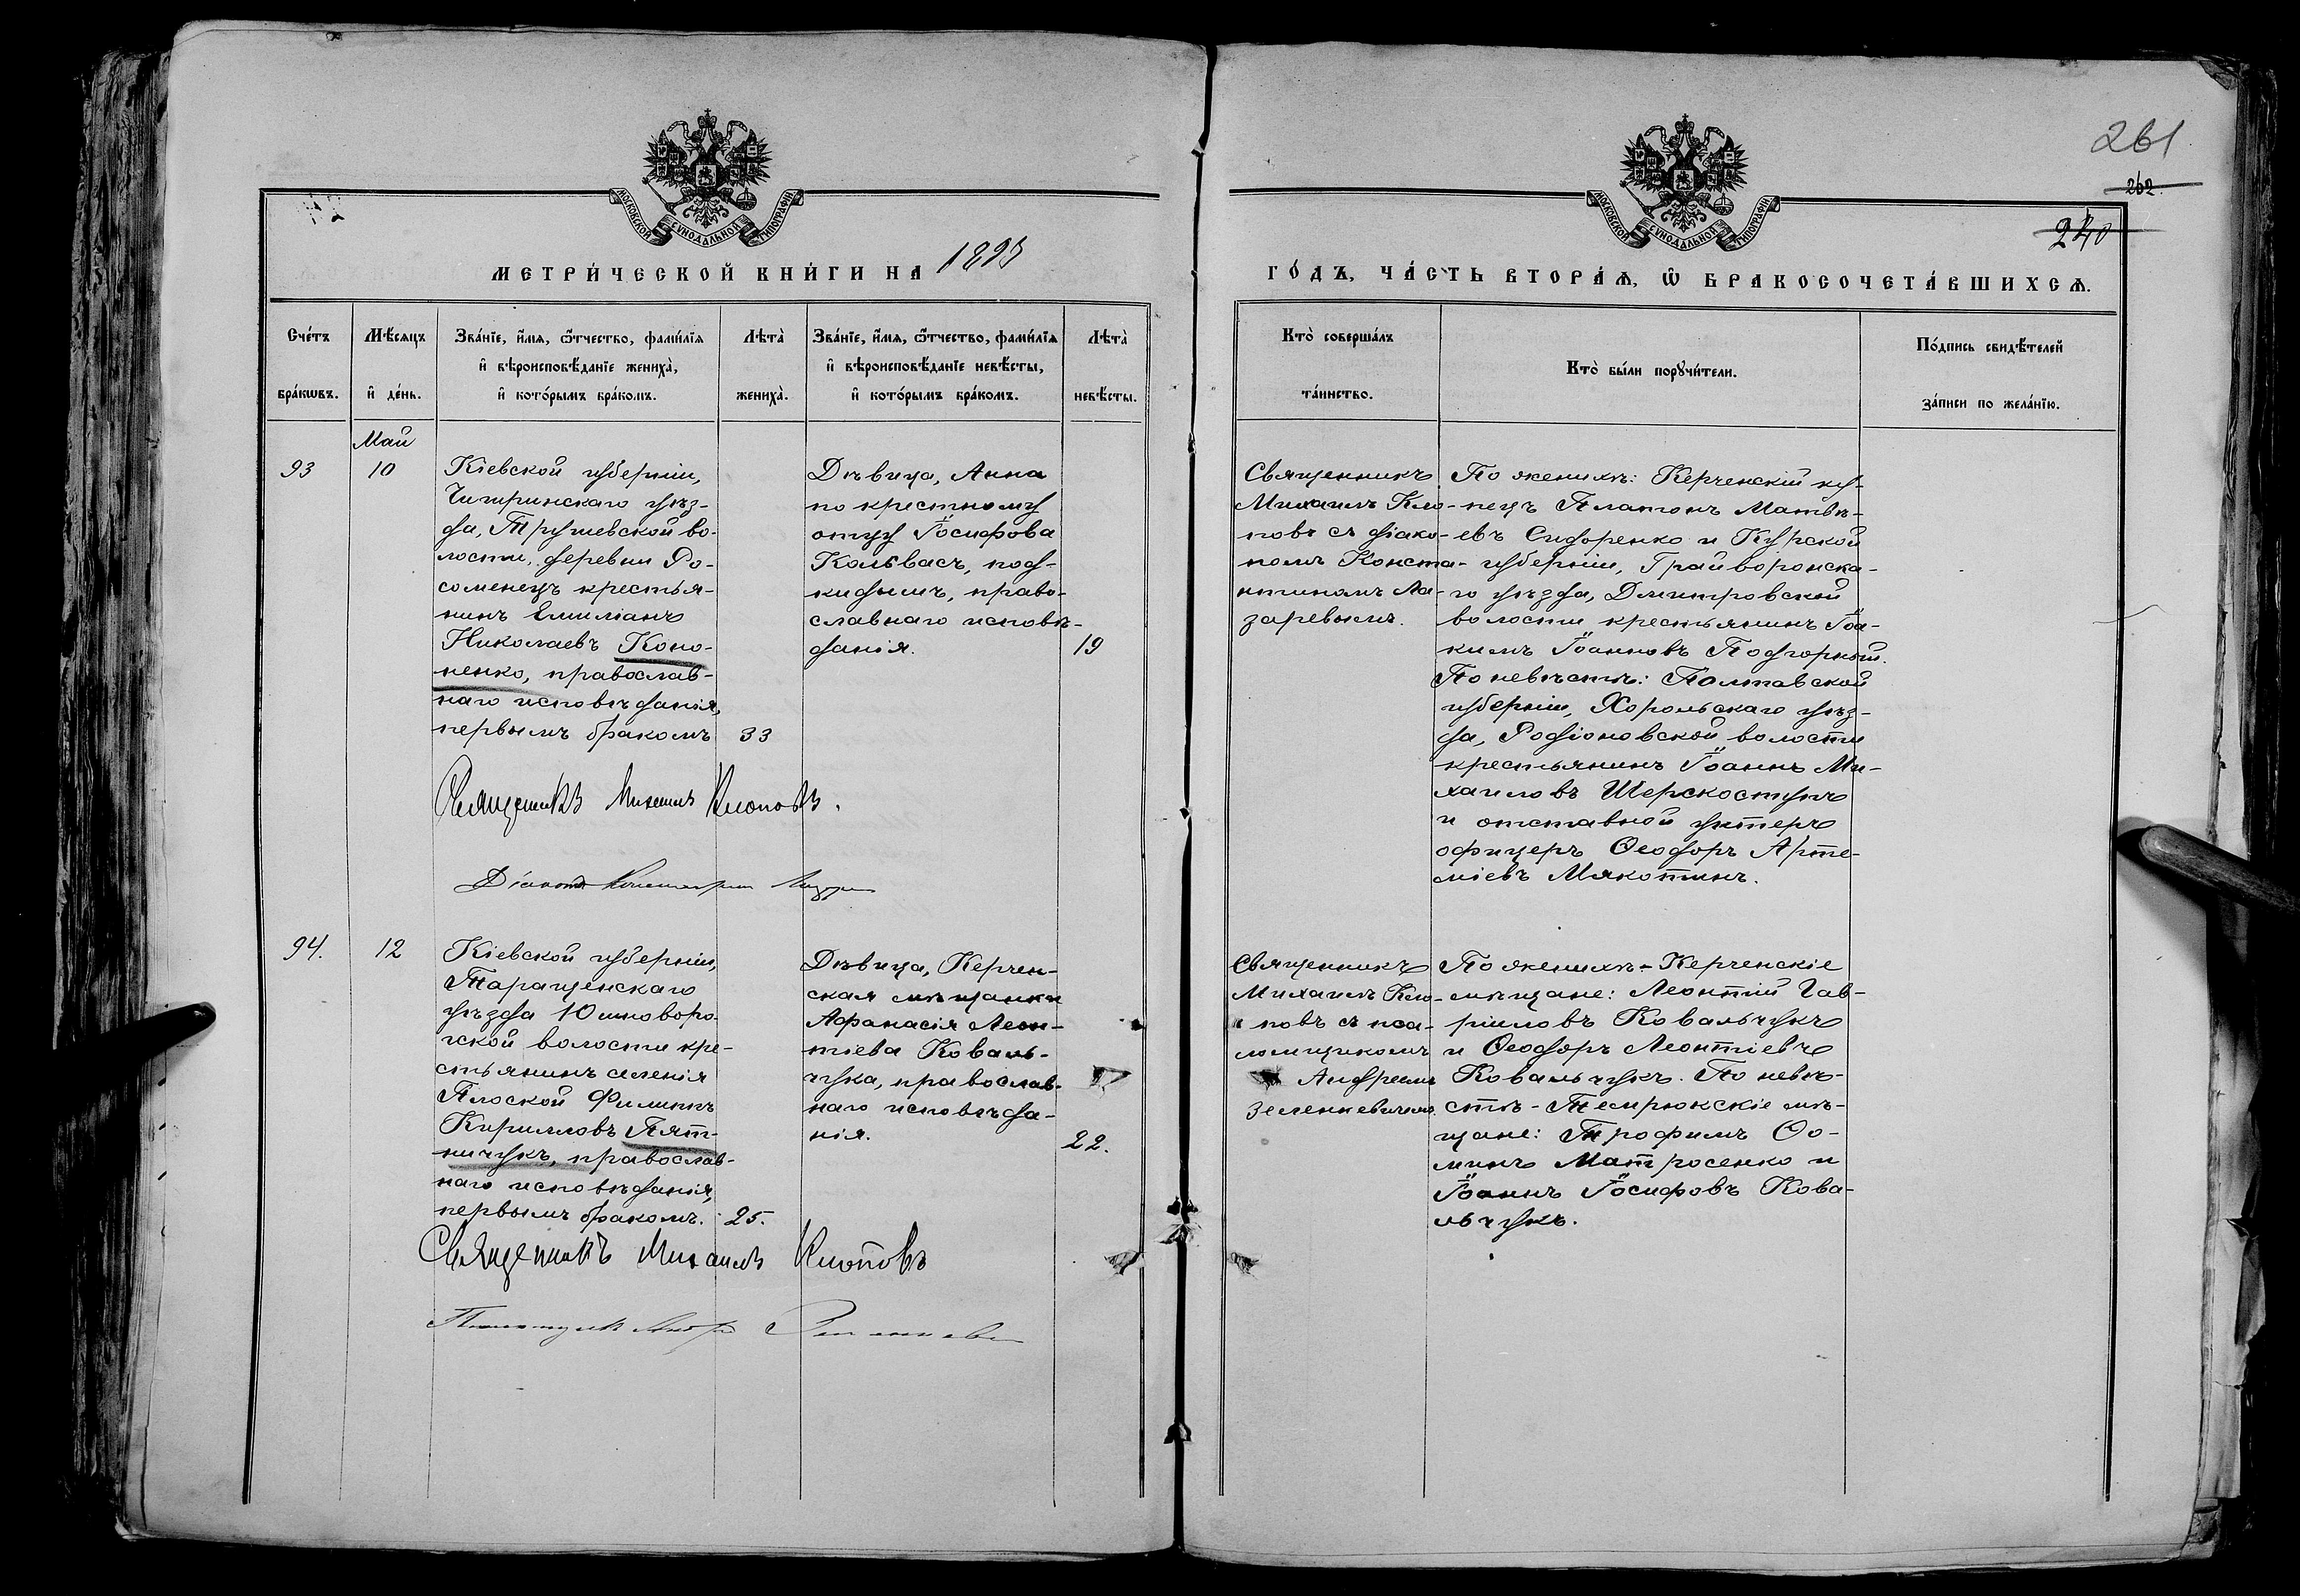 261
262
240
МОСКОВСКОЙ СѴНОДАЛЬНОЙ ТИПОГРАФІИ
МОСКОВСКОЙ СѴНОДАЛЬНОЙ ТИПОГРАФІИ
МЕТРИ́ЧЕСКОЙ КНИ́ГИ НА 1895
ГО́ДЪ, ЧА́СТЬ ВТОРА́Ѧ, Ѿ БРАКОСОЧЕТА́ВШИХСѦ.
Сче́тъ бра́кѡвъ.
Мѣ́сяцъ и҆ де́нь.
Зва́нїе, и҆́мѧ, ѻ҆́тчество, фами́лїѧ и҆ вѣроисповѣ́данїе жениха̀, и҆ кото́рымъ бра́комъ.
Лѣта̀ жениха̀.
Зва́нїе, и҆́мѧ, ѻ҆́тчество, фами́лїѧ и҆ вѣроисповѣ́данїе невѣ́сты, и҆ кото́рымъ бра́комъ.
Лѣта̀ невѣ́сты.
Кто̀ соверша́лъ та́инство.
Кто̀ бы́ли порꙋчи́тели.
По́дпись свидѣ́телей за́писи по жела́нїю.
Май
93
10
Кіевской губерніи,
Чигринскаго уѣз-
да, Трушевской во-
лости, деревни Ро-
соменецъ крестья-
нинъ Емиліанъ
Николаевъ Коно-
ненко, православ-
наго исповѣданія,
первымъ бракомъ
33
Дѣвица, Анна
по крестному
отцу Іосифова
Кольвасъ, под-
кидышъ, право-
славнаго исповѣ-
данія.
19
Священникъ
Михаилъ Кло-
повъ съ діако-
номъ Конста-
нтиномъ Ла-
заревымъ.
По женихѣ: Керченскій ку-
пецъ Платонъ Матвѣ-
евъ Сидоренко и Курской
губерніи, Грайворонска-
го уѣзда, Дмитровской
волости крестьянинъ Іоа-
кимъ Іоанновъ Подгорный.
По невѣстѣ: Полтавской
губерніи, Хорольскаго уѣз-
да, Родіоновской волости
крестьянинъ Іоаннъ Ми-
хаиловъ Шерскостукъ
и отставной унтеръ
офицеръ Ѳеодоръ Арте-
міевъ Мякотинъ.
Священникъ Михаилъ Клоповъ.
Діаконъ Константинъ
94.
12
Кіевской губерніи,
Таращенскаго
уѣзда Юшноворо-
гской волости кре-
стьянинъ селенія
Плоской Филиппъ
Кирилловъ Пят-
ничукъ, православ-
наго исповѣданія,
первымъ бракомъ.
25.
Дѣвица, Керчен-
ская мѣщанка
Афанасія Леон-
тіева Коваль-
чука, православ-
наго исповѣда-
нія.
22.
Священникъ
Михаилъ Кло-
повъ съ пса-
ломщикомъ
Андреемъ
Зеленкевичемъ.
По женихѣ - Керченскіе
мѣщане: Леонтій Гав-
ріиловъ Ковальчукъ
и Ѳеодоръ Леонтіевъ
Ковальчукъ. По невѣ-
стѣ - Темрюкскіе мѣ-
щане: Трофимъ Ѳо-
минъ Матросенко и
Іоаннъ Іосифовъ Кова-
льчукъ.
Священникъ Михаилъ Клоповъ